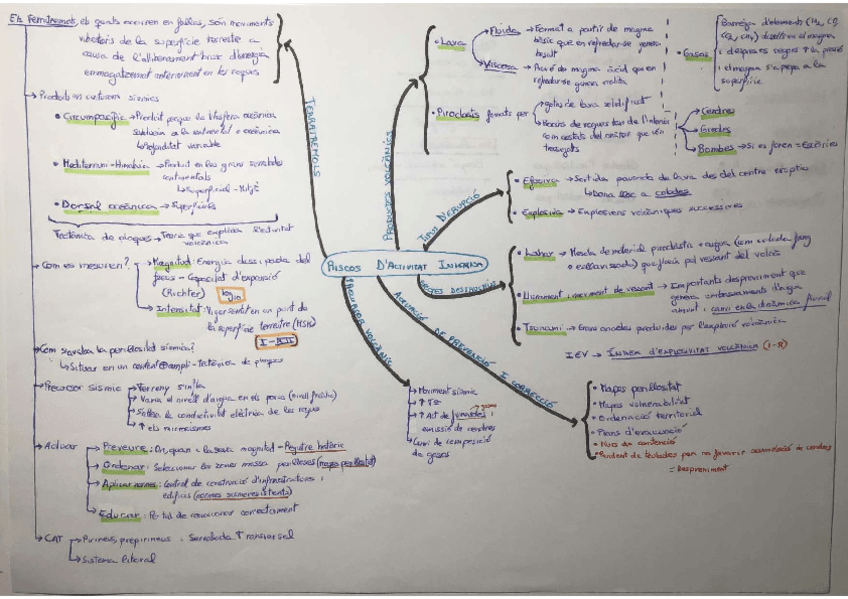 Els Terratrèmols, els quals ocorren en falles, són moviments
vibratoris de la superfície terrestre a
causa de l'alliberament brusc d'energia
emmagatzemat anteriorment en les roques
→ Produïts en cinturons sísmics
• Circumpacífic → Produït perquè la litosfera oceànica
subdueix a la continental o oceànica
↳ Profunditat variable
• Mediterrani-Himàlaia → Produït en les grans serralades
continentals
↳ Superficial - Mitjà
• Dorsal oceànica → Superficials
Tectònica de plaques → Teoria que explica l'activitat
volcànica
→ Com es mesuren?
→ Magnitud: Energia dessipada del
focus - Capacitat d'expansió
(Richter) log10
→ Intensitat: Vigor sentit en un punt de
la superfície terrestre (MSK)
I - XII
→ Com s'avalua la perillositat sísmica?
↳ Situar en un context ampli - tectònica de plaques
→ Precursor sísmic
→ Terreny s'infla
→ Varia el nivell d'aigua en els pous (nivell freàtic)
→ la conductivitat elèctrica de les roques
↑ els microsismes
→ Actuar
→ Preveure: On, quan i la seva magnitud - Registre històric
→ Ordenar: Seleccionar les zones menys perilloses (mapes perillositat)
→ Aplicar normes: Control de construcció d'infrastructures i
edificis (normes sismoresistents)
→ Educar: Per tal de reaccionar correctament
→ CAT
→ Pirineus, prepirineus i Serralada Transversal
→ Sistema litoral
TERRATRÈMOLS
RISCOS D'ACTIVITAT INTERNA
PRODUCTES VOLCÀNICS
• Lava
Fluida → Format a partir de magma
bàsic que en refredar-se genera
basalt
Viscosa → Prové de magma àcid que en
refredar-se genera riolita
• Piroclasts formats per
→ gotes de lava solidificat
→ trossos de roques tan de l'interior
com estats del cràter que són
trencats
→ Cendres
→ Gredes
→ Bombes → Si es foren = Escòries
• Gasos
Barreja d'elements (H2, CO2,
CH4) dissolts en el magma
i despresos segons ↑ la pressió
el magma s'apropa a la
superfície
TIPUS D'ERUPCIÓ
• Efusiva → Sortida pausada de lava des del centre eruptiu
↳ Dona lloc a colades
• Explosiva → Explosions volcàniques successives
EFECTES DESTRUCTIUS
• Lahar → Mescla de material piroclàstic + aigua (com colada fang
o esllavissada) que flueix pel vessant del volcà
• Lliscament i moviment de vessant → Importants despreniment que
genera embassaments d'aigua
amunt i canvi en la dinàmica fluvial
• Tsunami → Grans onades produïdes per l'explosió volcànica
IEV → ÍNDEX D'EXPLOSIVITAT VOLCÀNICA (1-8)
ACTUACIÓ DE PREVENCIÓ I CORRECCIÓ
• Mapes perillositat
• Mapes vulnerabilitat
• Ordenació territorial
• Plans d'evacuació
• Murs de contenció
• Pendent de teulades per no afavorir acumulació de cendres
= Despreniment
PRECURSOR VOLCÀNIC
→ Moviment sísmic
→ ↑ Tª
→ ↑ Act de fumaroles → gasos i
emissió de cendres
→ Canvi de composició
de gasos